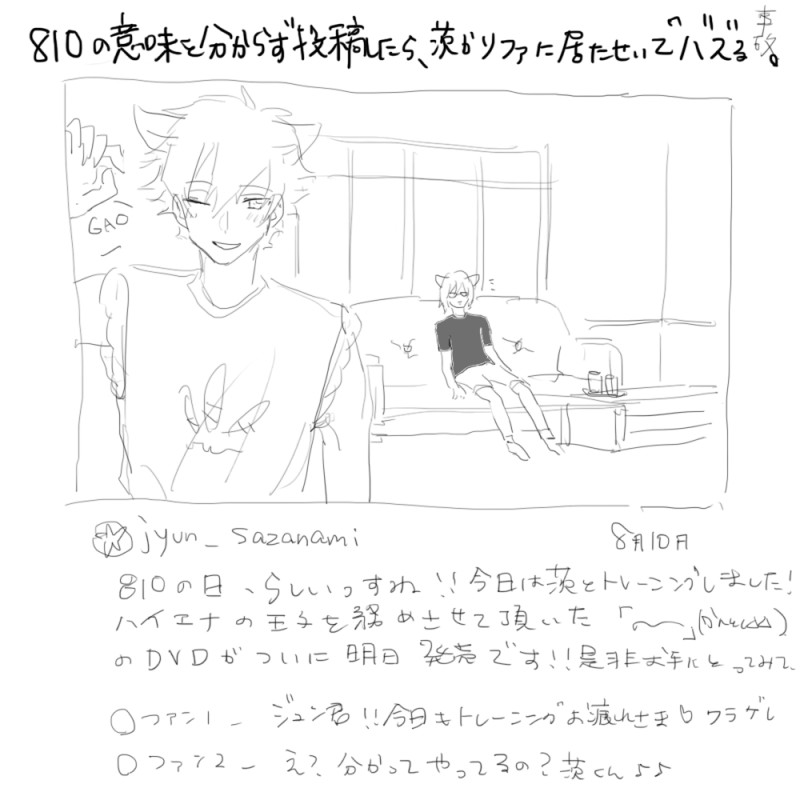 810の意味を分からず投稿したら、茨がソファに居たせいでバズる事故。
GAO
jyun_sazanami 8月10日
810の日、らしいっすね!!今日は茨とトレーニングしました!
ハイエナの王子を務めさせて頂いた「〜〜」
のDVDがついに明日発売です!!是非お手にとってみて、
○ファン1ー ジュン君!!今日もトレーニングお疲れさま
○ファン2ー え?分かってやってるの?茨くん♪♪